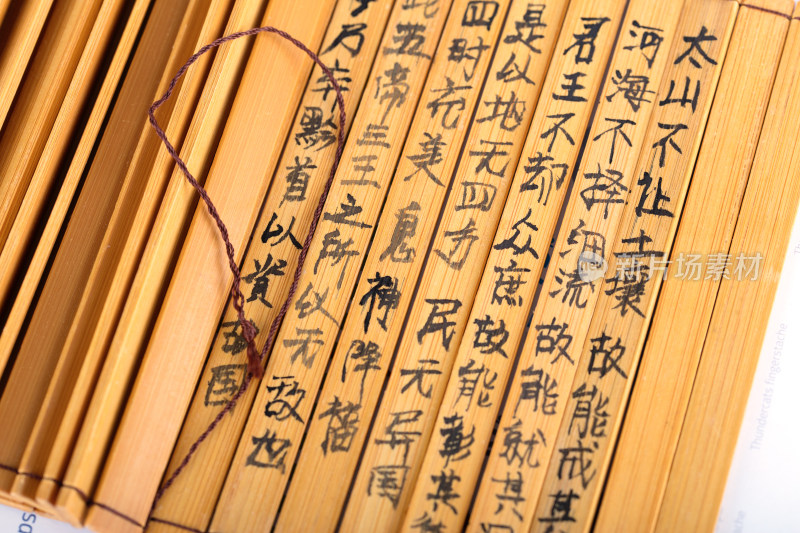 太山不让土壤故能成其
河海不择细流故能就其
君王不却众庶故能彰其
是以地无四方民无异国
四时花美鬼神降福
此苏帝三王之所仪无敌也
乃弃黔首以资故国
Thundercats fingerstache